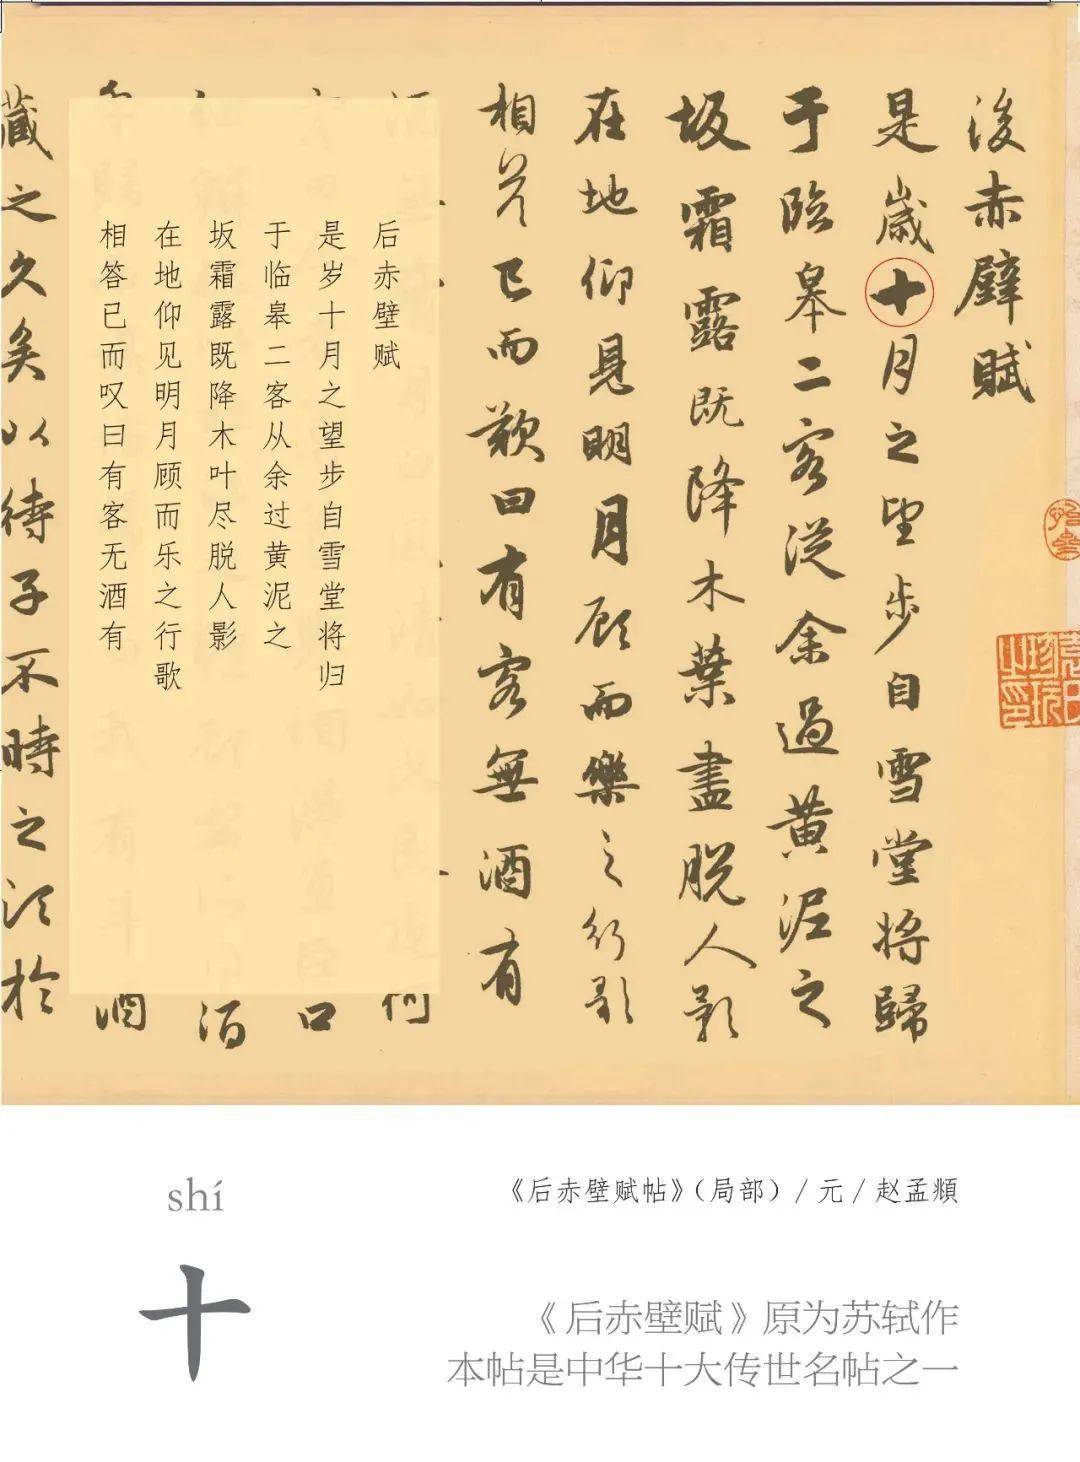 後赤壁賦
是歲十月之望步自雪堂將歸
于臨皋二客從余過黄泥之
坂霜露既降木葉盡脱人影
在地仰見明月顧而樂之行歌
相答已而歎曰有客無酒有
何
口
酒
酒
藏之久矣以待子不時之須於
后赤壁赋
是岁十月之望步自雪堂将归
于临皋二客从余过黄泥之
坂霜露既降木叶尽脱人影
在地仰见明月顾而乐之行歌
相答已而叹曰有客无酒有
shí
十
《后赤壁赋帖》（局部）/ 元 / 赵孟頫
《后赤壁赋》原为苏轼作
本帖是中华十大传世名帖之一